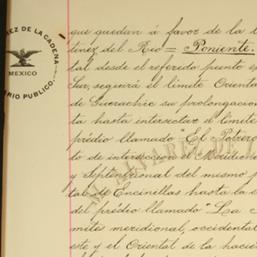 REZ DE LA CADENA
MEXICO
ARIO PUBLICO.
que quedan á favor de la
tinez del Rio = Poniente.
tal desde el referido punto
Sur seguirá el límite Oriental
de Guerachic su prolongacion
ta hasta interceptar el límite
prédio llamado "El Potrero
to de interseccion el Meridional
y Septentrional del mismo
tal de Encinillas hasta la
del prédio llamado "La
mites meridional, occidental
este y el Oriental de la hacie